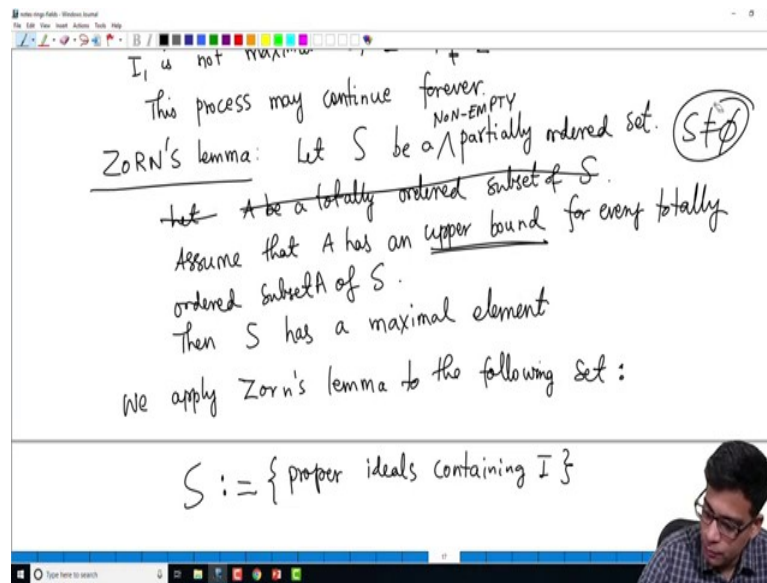 notes-rings-fields - Windows Journal
File Edit View Insert Actions Tools Help
I₁ is not
This process may continue forever.
NON-EMPTY
ZORN'S lemma: Let S be a ∧ partially ordered set. S≠∅
Let A be a totally ordered subset of S.
Assume that A has an upper bound for every totally
ordered subset A of S.
Then S has a maximal element
We apply Zorn's lemma to the following set:
S := { proper ideals containing I }
17
Type here to search